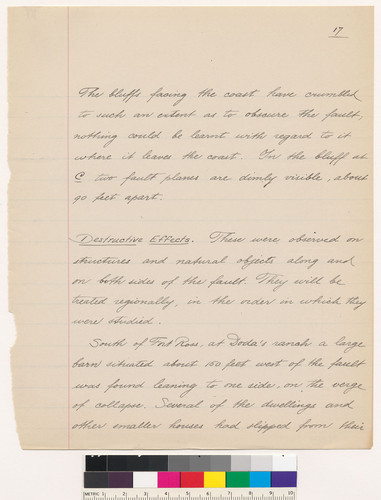 17
The bluffs facing the coast have crumbled
to such an extent as to obscure the fault,
nothing could be learnt with regard to it
where it leaves the coast. In the bluff at
C two fault planes are dimly visible, about
90 feet apart.
Destructive Effects. These were observed on
structures and natural objects along and
on both sides of the fault. They will be
treated regionally, in the order in which they
were studied.
South of Fort Ross, at Doda's ranch a large
barn situated about 150 feet west of the fault
was found leaning to one side, on the verge
of collapse. Several of the dwellings and
other smaller houses had slipped from their
METRIC 1 2 3 4 5 6 7 8 9 10